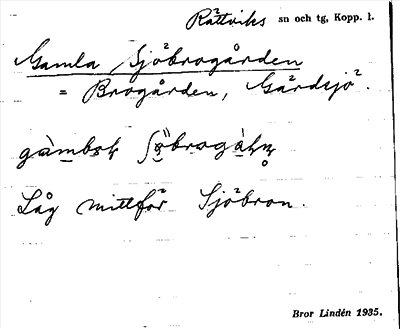 Rättviks sn och tg, Kopp. l.
Gamla Sjöbrogården
= Brogården, Gärdsjö.
Låg mittför Sjöbron.
Bror Lindén 1935.